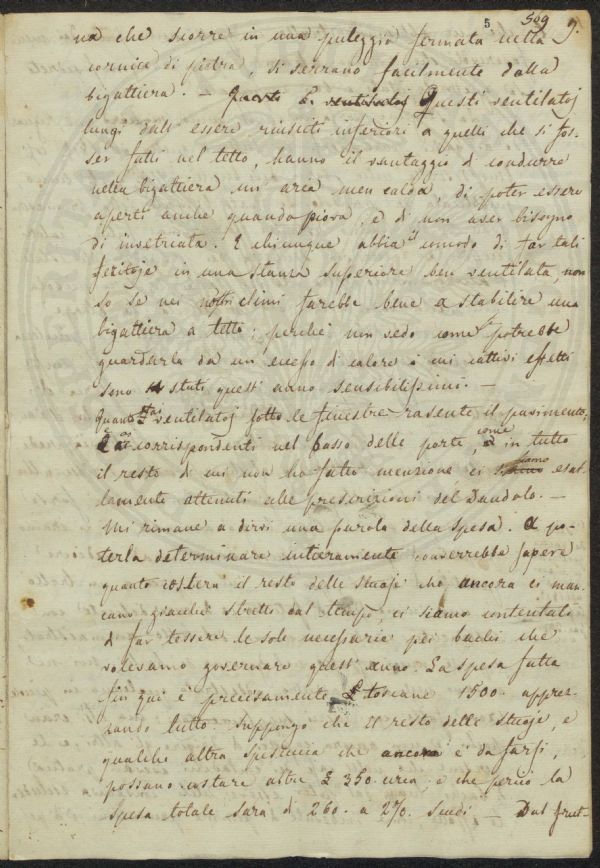 5 509 9.
na che scorre in una puleggia fermata nella
cornice di pietra, si serrano facilmente dalla
bigattiera. — Questi ventilatoj
lungi dall' essere riusciti inferiori a quelli che si fos-
ser fatti nel tetto, hanno il vantaggio di condurre
nella bigattiera un' aria men calda, di poter essere
aperti anche quando piova, e di non aver bisogno
di invetriata. E chiunque abbia il comodo di far tali
feritoje in una stanza superiore ben ventilata, non
so se nei nostri climi farebbe bene a stabilire una
bigattiera a tetto; perchè non vedo come potrebbe
guardarla da un eccesso di calore i cui cattivi effetti
sono stati quest' anno sensibilissimi. —
Quanto ai ventilatoj sotto le finestre rasente il pavimento,
e ai corrispondenti nel basso delle porte, come in tutto
il resto di cui non ho fatto menzione, ci siamo esat-
tamente attenuti alle prescrizioni del Dandolo. —
Mi rimane a dirvi una parola della spesa. A po-
terla determinare interamente converrebbe sapere
quanto costerà il resto delle stuoje che ancora ci man-
cano giacchè stretti dal tempo, ci siamo contentati
di far tessere le sole necessarie pei bachi che
volevamo governare quest' anno. La spesa fatta
fin qui è precisamente £ toscane 1500. apprez-
zando tutto. Suppongo che il resto delle stuoje, e
qualche altra spesuccia che ancora è da farsi,
possano costare altre £ 350. circa, e che perciò la
spesa totale sarà di 260. a 270. scudi — Dal frut-